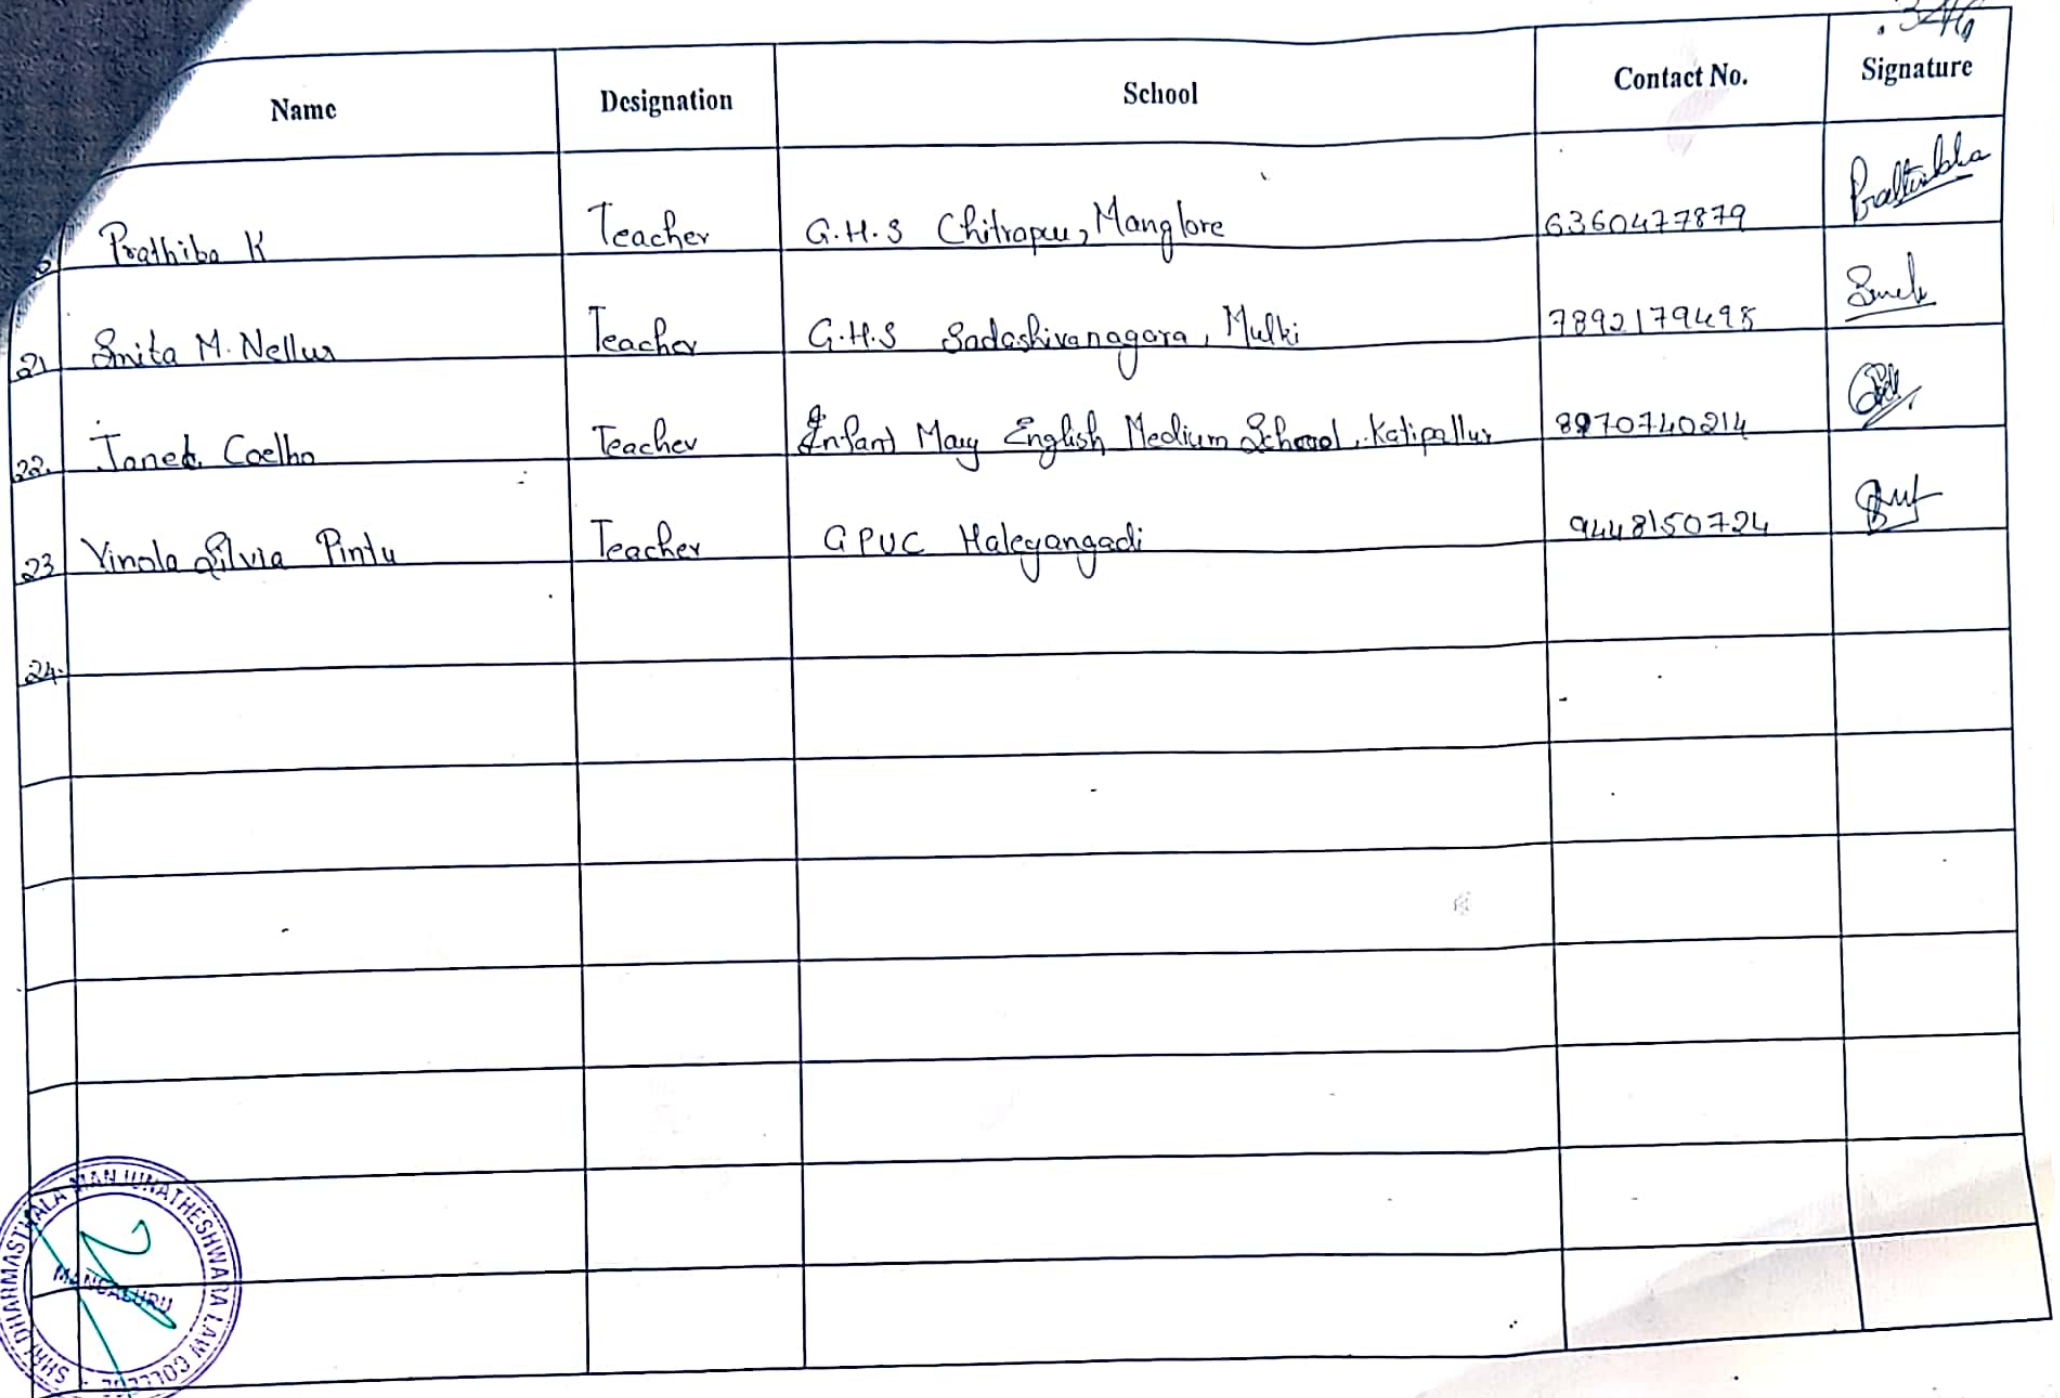 Name Designation School Contact No. Signature
Prathiba K Teacher G.H.S Chitrapu, Manglore 6360477879 Prathibha
21 Smita M. Nellur Teacher G.H.S Sadashivanagara, Mulki 7892179495
22. Janet Coelho Teacher Infant Mary English Medium School, Katipallur 8970740214
23 Vinola Silvia Pintu Teacher GPUC Haleyangadi 9448150724
24.
SHRI DHARMASTHALA MANJUNATHESHWARA LAW COLLEGE
MANGALURU